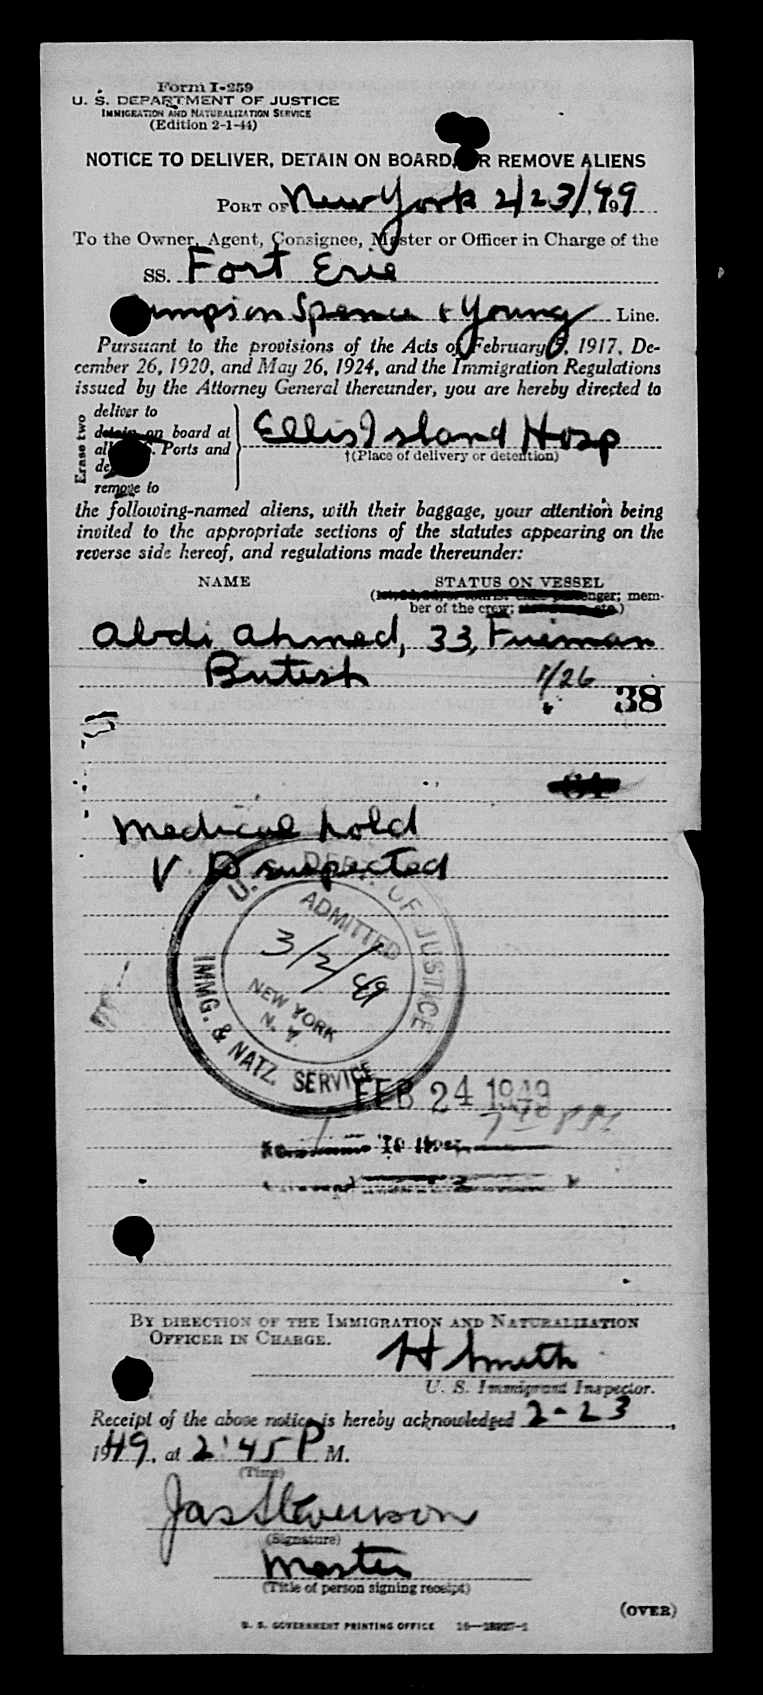 Form I-259
U. S. DEPARTMENT OF JUSTICE
IMMIGRATION AND NATURALIZATION SERVICE
(Edition 2-1-44)
NOTICE TO DELIVER, DETAIN ON BOARD, R REMOVE ALIENS
PORT OF New York 2/23/49
To the Owner, Agent, Consignee, Master or Officer in Charge of the
SS. Fort Erie
impson Spence & Young Line.
Pursuant to the provisions of the Acts of February 5, 1917, De-
cember 26, 1920, and May 26, 1924, and the Immigration Regulations
issued by the Attorney General thereunder, you are hereby directed to
Erase two
deliver to
detain on board at
al Ports and
de
remove to
Ellis Island Hosp
†(Place of delivery or detention)
the following-named aliens, with their baggage, your attention being
invited to the appropriate sections of the statutes appearing on the
reverse side hereof, and regulations made thereunder:
NAME STATUS ON VESSEL
passenger; mem-
ber of the crew;
Abdi Ahmed, 33, Fireman
British 1/26
38
Medical hold
V D suspected
U. S. DEPT. OF JUSTICE
ADMITTED
3/2/49
NEW YORK
N. Y.
IMMG. & NATZ. SERVICE
FEB 24 1949
BY DIRECTION OF THE IMMIGRATION AND NATURALIZATION
OFFICER IN CHARGE.
H Smith
U. S. Immigrant Inspector.
Receipt of the above notice is hereby acknowledged 2-23,
1949, at 2:45 P M.
(Time)
Jas Stevenson
(Signature)
Master
(Title of person signing receipt)
(OVER)
U. S. GOVERNMENT PRINTING OFFICE 16—18927-1